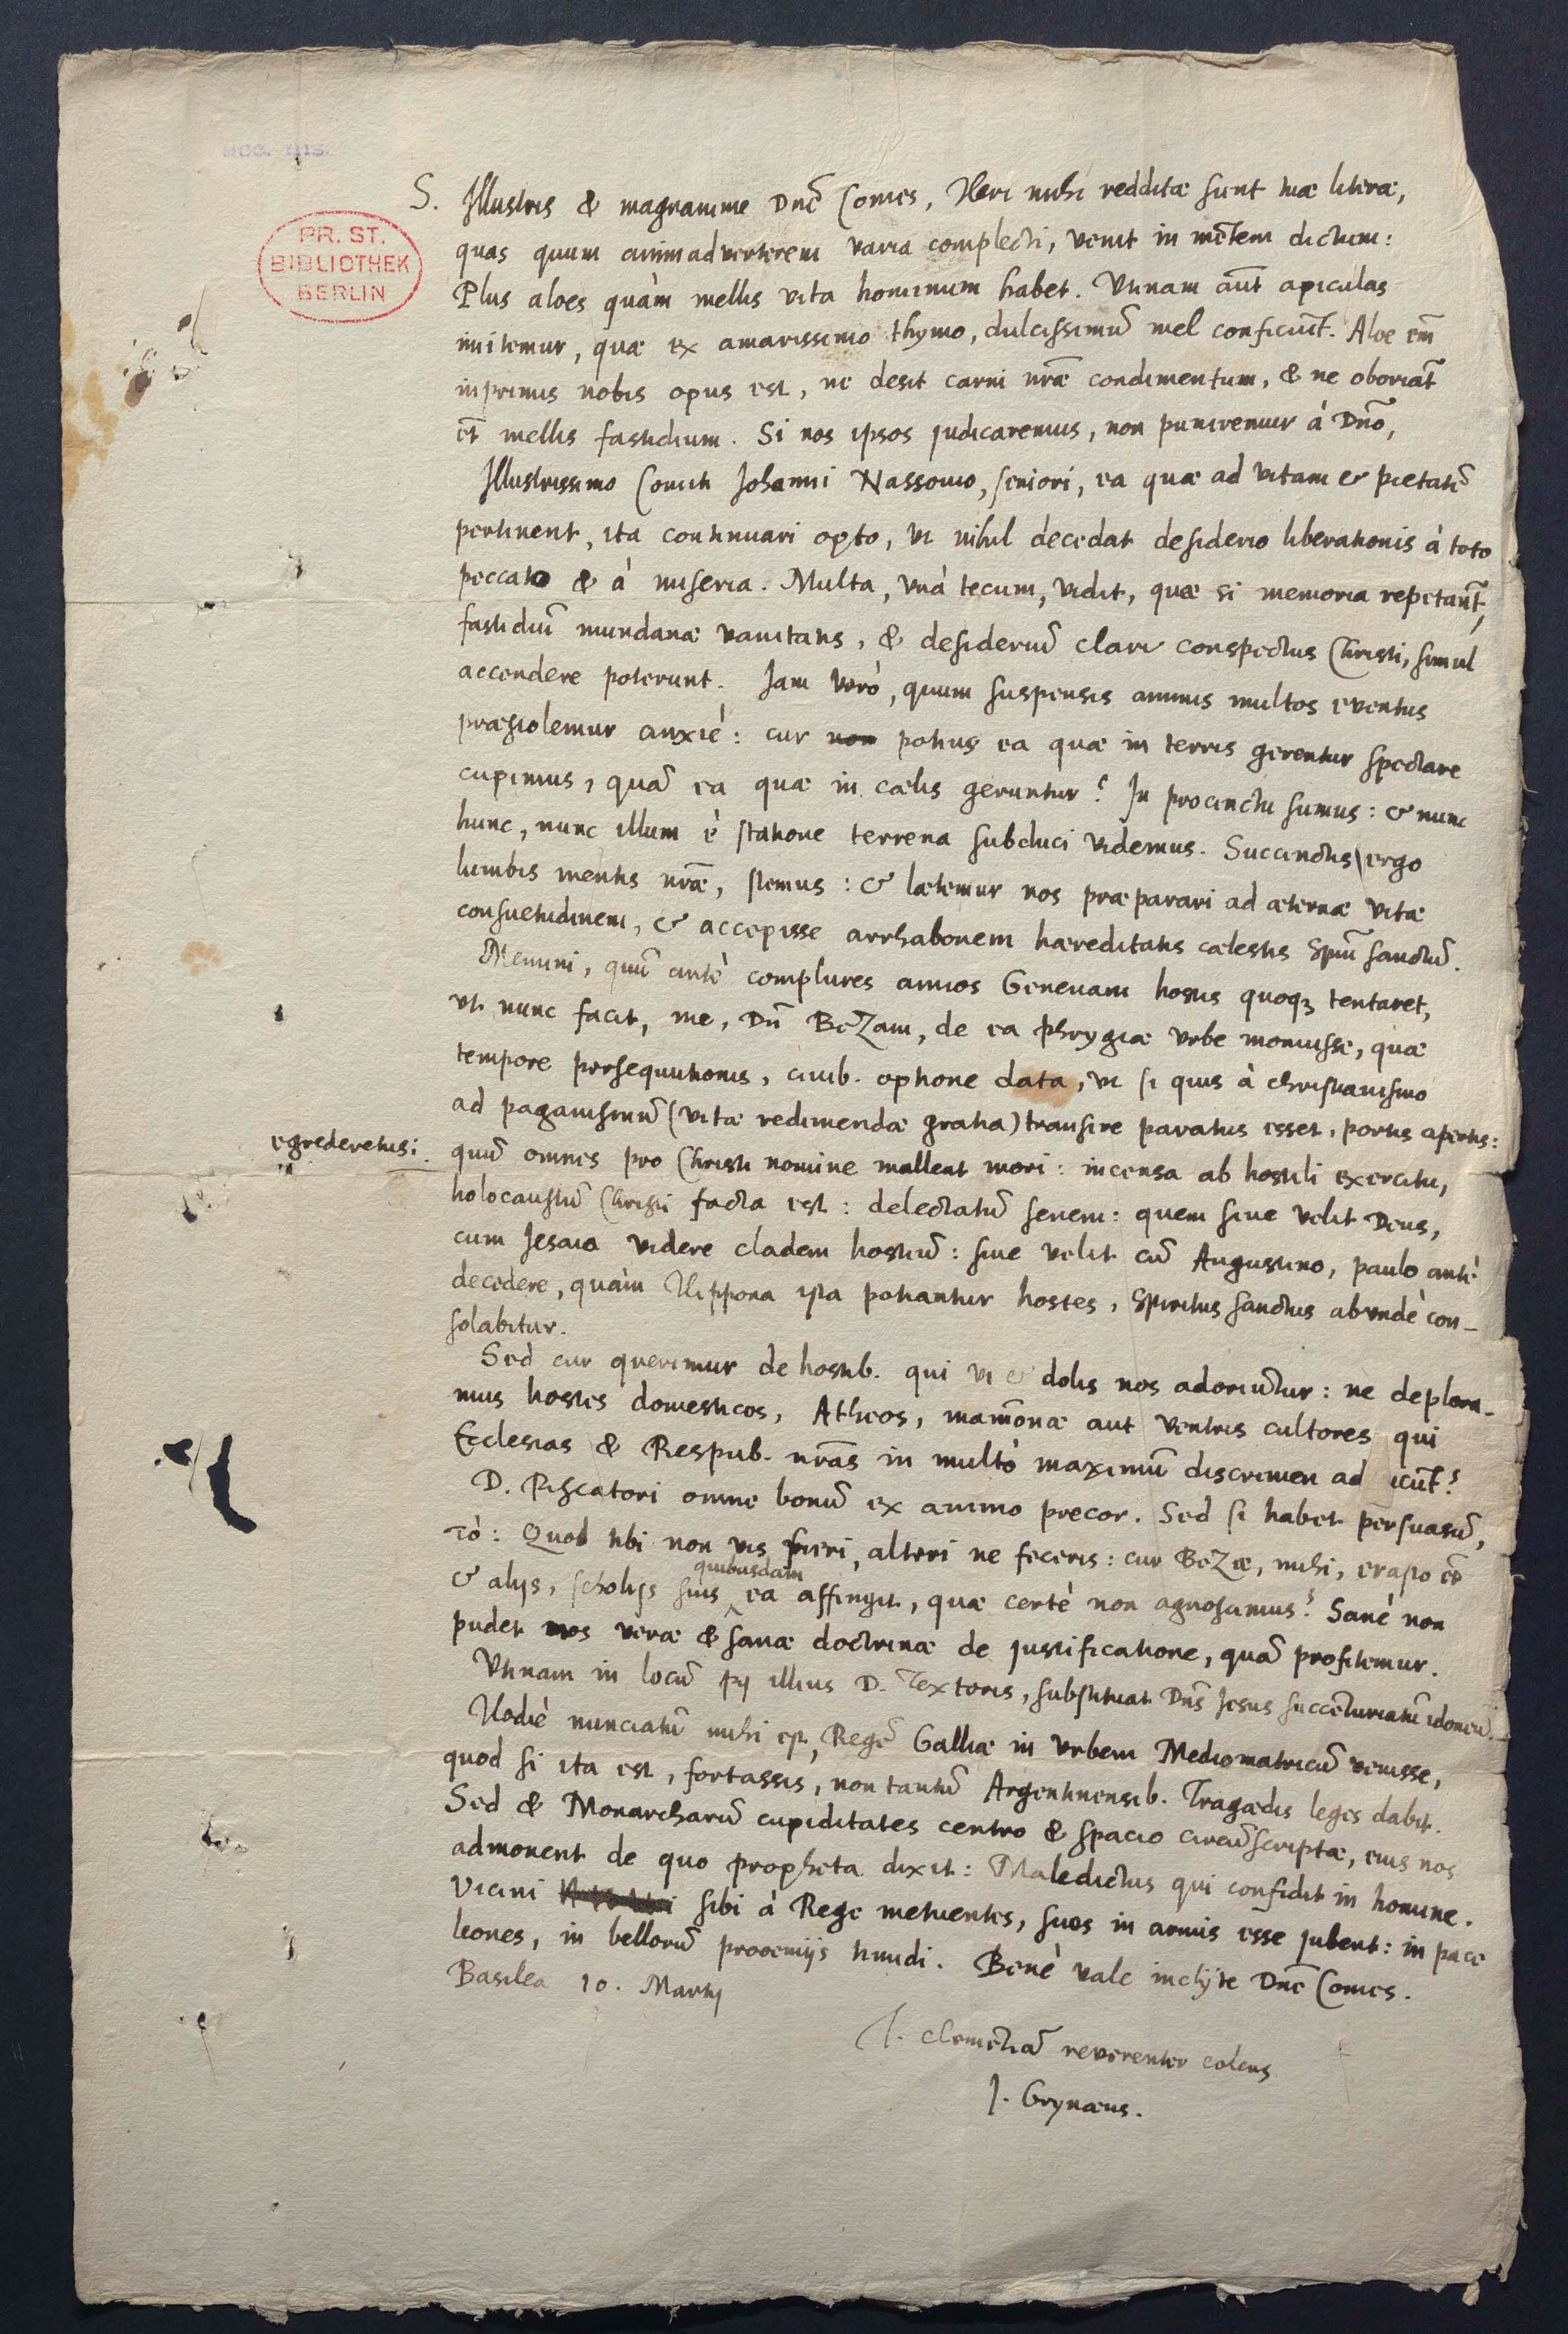 acc. ms.
PR. ST.
BIBLIOTHEK
BERLIN
S. Illustris & magnanime Dnē Comes, Heri mihi redditæ sunt tuæ literæ,
quas quum animadverterem varia complecti, venit in mētem dictum:
Plus aloes quàm mellis vita hominum habet. Utinam aūt apiculas
imitemur, quæ ex amarissimo thymo, dulcissimū mel conficiūt. Aloe em̄
inprimis nobis opus est, ne desit carni nr̄æ condimentum, & ne oboriat̄
et̄ mellis fastidium. Si nos ipsos judicaremus, non puniremur à Dn̄o,
Illustrissimo Comiti Johanni Nassovio, seniori, ea quæ ad vitam & pietatē
pertinent, ita continuari opto, ut nihil decedat desiderio liberationis à toto
peccato & à miseria. Multa, unà tecum, vidit, quæ si memoria repetant̄,
fastidiū mundanæ vanitatis, & desideriū clari conspectus Christi, simul
accendere poterunt. Jam verò, quum suspensis animis multos eventus
præstolemur anxiè: cur non potius ea quæ in terris gerentur spectare
cupimus, quā ea quæ in cælis geruntur? In procinctu sumus: & nunc
hunc, nunc illum è statione terrena subduci videmus. Succinctis ergo
lumbis mentis nr̄æ, stemus: & lætemur nos præparari ad æternæ vitæ
consuetudinem, & accepisse arrhabonem hæreditatis cælestis Spm̄ sanctū.
Memini, quū antè complures annos Genevam hostis quoq3 tentaret,
ut nunc facit, me, Dn̄ BeZam, de ea phrygiæ urbe monuisse, quæ
tempore persequutionis, civib. optione data, ut si quis à christianismo
ad paganismū (vitæ redimendæ gratia) transire paratus esset, portis apertis:
egrederetur:
quū omnes pro Christi nomine mallent mori: incensa ab hostili exercitu,
holocaustū Christi facta est: delectatū senem: quem sive velit Deus,
cum Jesaia videre cladem hostiū: sive velit cū Augustino, paulo antè
decedere, quàm Hippona ista potiantur hostes, Spiritus sanctus abundè con-
solabitur.
Sed cur querimur de hostib. qui vi & dolis nos adoriūtur: ne deplora-
mus hostes domesticos, Atheos, mam̄onæ aut ventris cultores qui
Ecclesias & Respub. nr̄as in multò maximū discrimen ad icūt?
D. Piscatori omne bonū ex animo precor. Sed si habet persuasū,
τὸ: Quod tibi non vis fieri, alteri ne feceris: cur BeZæ, mihi, erasto et̄
& alijs, scholijs suis quibusdam ea affingit, quæ certè non agnoscimus? Sanè non
pudet nos veræ & sanæ doctrinæ de justificatione, quā profitemur.
Utinam in locū pij illius D. Textoris, substituat Dn̄s Jesus succēturiatū idoneū.
Hodiè nunciatū mihi est, Regē Galliæ in urbem Mediomatricū venisse,
quod si ita est, fortassis, non tantū Argentinensib. Tragædis leges dabit.
Sed & Monarcharū cupiditates centro & spacio circūscriptæ, eius nos
admonent de quo propheta dixit: Maledictus qui confidit in homine.
Vicini sibi à Rege metuentes, suos in armis esse jubent: in pace
leones, in bellorū prooemijs timidi. Benè vale inclyte Dnē Comes.
Basilea 10. Martij
T. clemētiā reverenter colens
J. Grynæus.